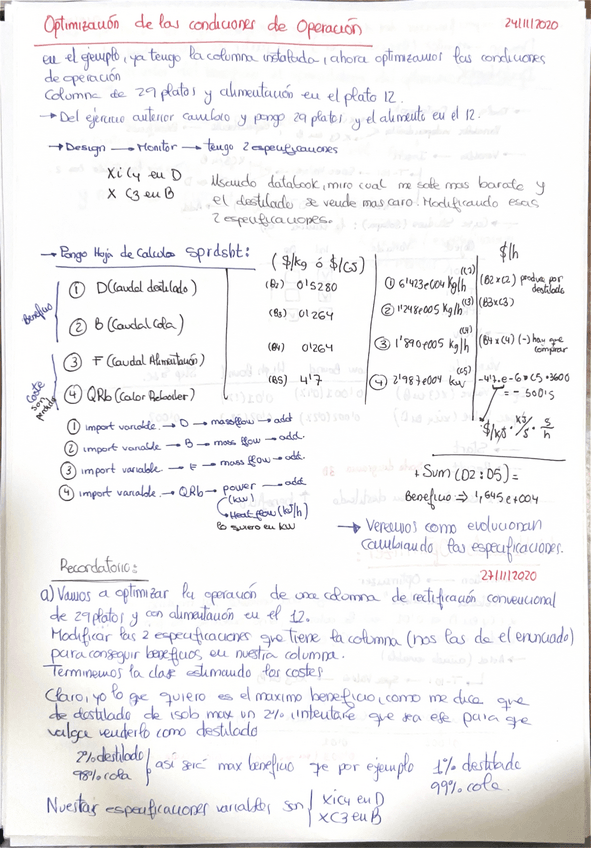 Optimización de las condiciones de Operación 24/11/2020
en el ejemplo, ya tengo la columna instalada, ahora optimizamos las condiciones
de operación
Columna de 29 platos y alimentación en el plato 12.
→ Del ejercicio anterior cambio y pongo 29 platos y el alimento en el 12.
→ Design → Monitor → tengo 2 especificaciones
XiC4 en D
X C3 en B
Usando databook, miro cual me sale mas barato y
el destilado se vende mas caro. Modificando esas
2 especificaciones.
→ Pongo Hoja de Calculo sprdsht: ($/kg ó $/CS) $/h
Beneficio
① D (Caudal destilado) (B2) 0'5280 ① 6'423e004 kg/h (C2) (B2 x C2) produce por destilado
② B (Caudal Cola) (B3) 0'1264 ② 1'248e005 kg/h (C3) (B3xC3)
Coste
③ F (Caudal Alimentación) (B4) 0'1264 ③ 1'890e005 kg/h (C4) (B4 x C4) (-) hay que comprar
④ QRb (Calor Reboiler) (B5) 4'7 ④ 2'987e004 kW (C5) -4'7.e-6*C5*3600
= -500's
$/KJ · KJ/s · s/h
① import variable → D → massflow → add
② import variable → B → mass flow → add.
③ import variable → F → mass flow → add.
④ import variable → QRb → power → add
(kW)
Heat flow (kJ/h)
lo quiero en kW
+ Sum (D2:D5) =
Beneficio ⇒ 1,645e+004
→ Veremos como evolucionan
cambiando las especificaciones.
Recordatorio: 27/11/2020
a) Vamos a optimizar la operación de una columna de rectificación convencional
de 29 platos y con alimentación en el 12.
Modificar las 2 especificaciones que tiene la columna (nos las da el enunciado)
para conseguir beneficios, en nuestra columna.
Terminemos la clase estimando los costes
Claro, yo lo que quiero es el maximo beneficio, como me dice que
de destilado de isob max un 2%, intentaré que sea ese para que
valga venderlo como destilado
2% destilado
98% cola
así seré max beneficio que por ejemplo
1% destilado
99% cola.
Nuestras especificaciones variables son
XiC4 en D
XC3 en B